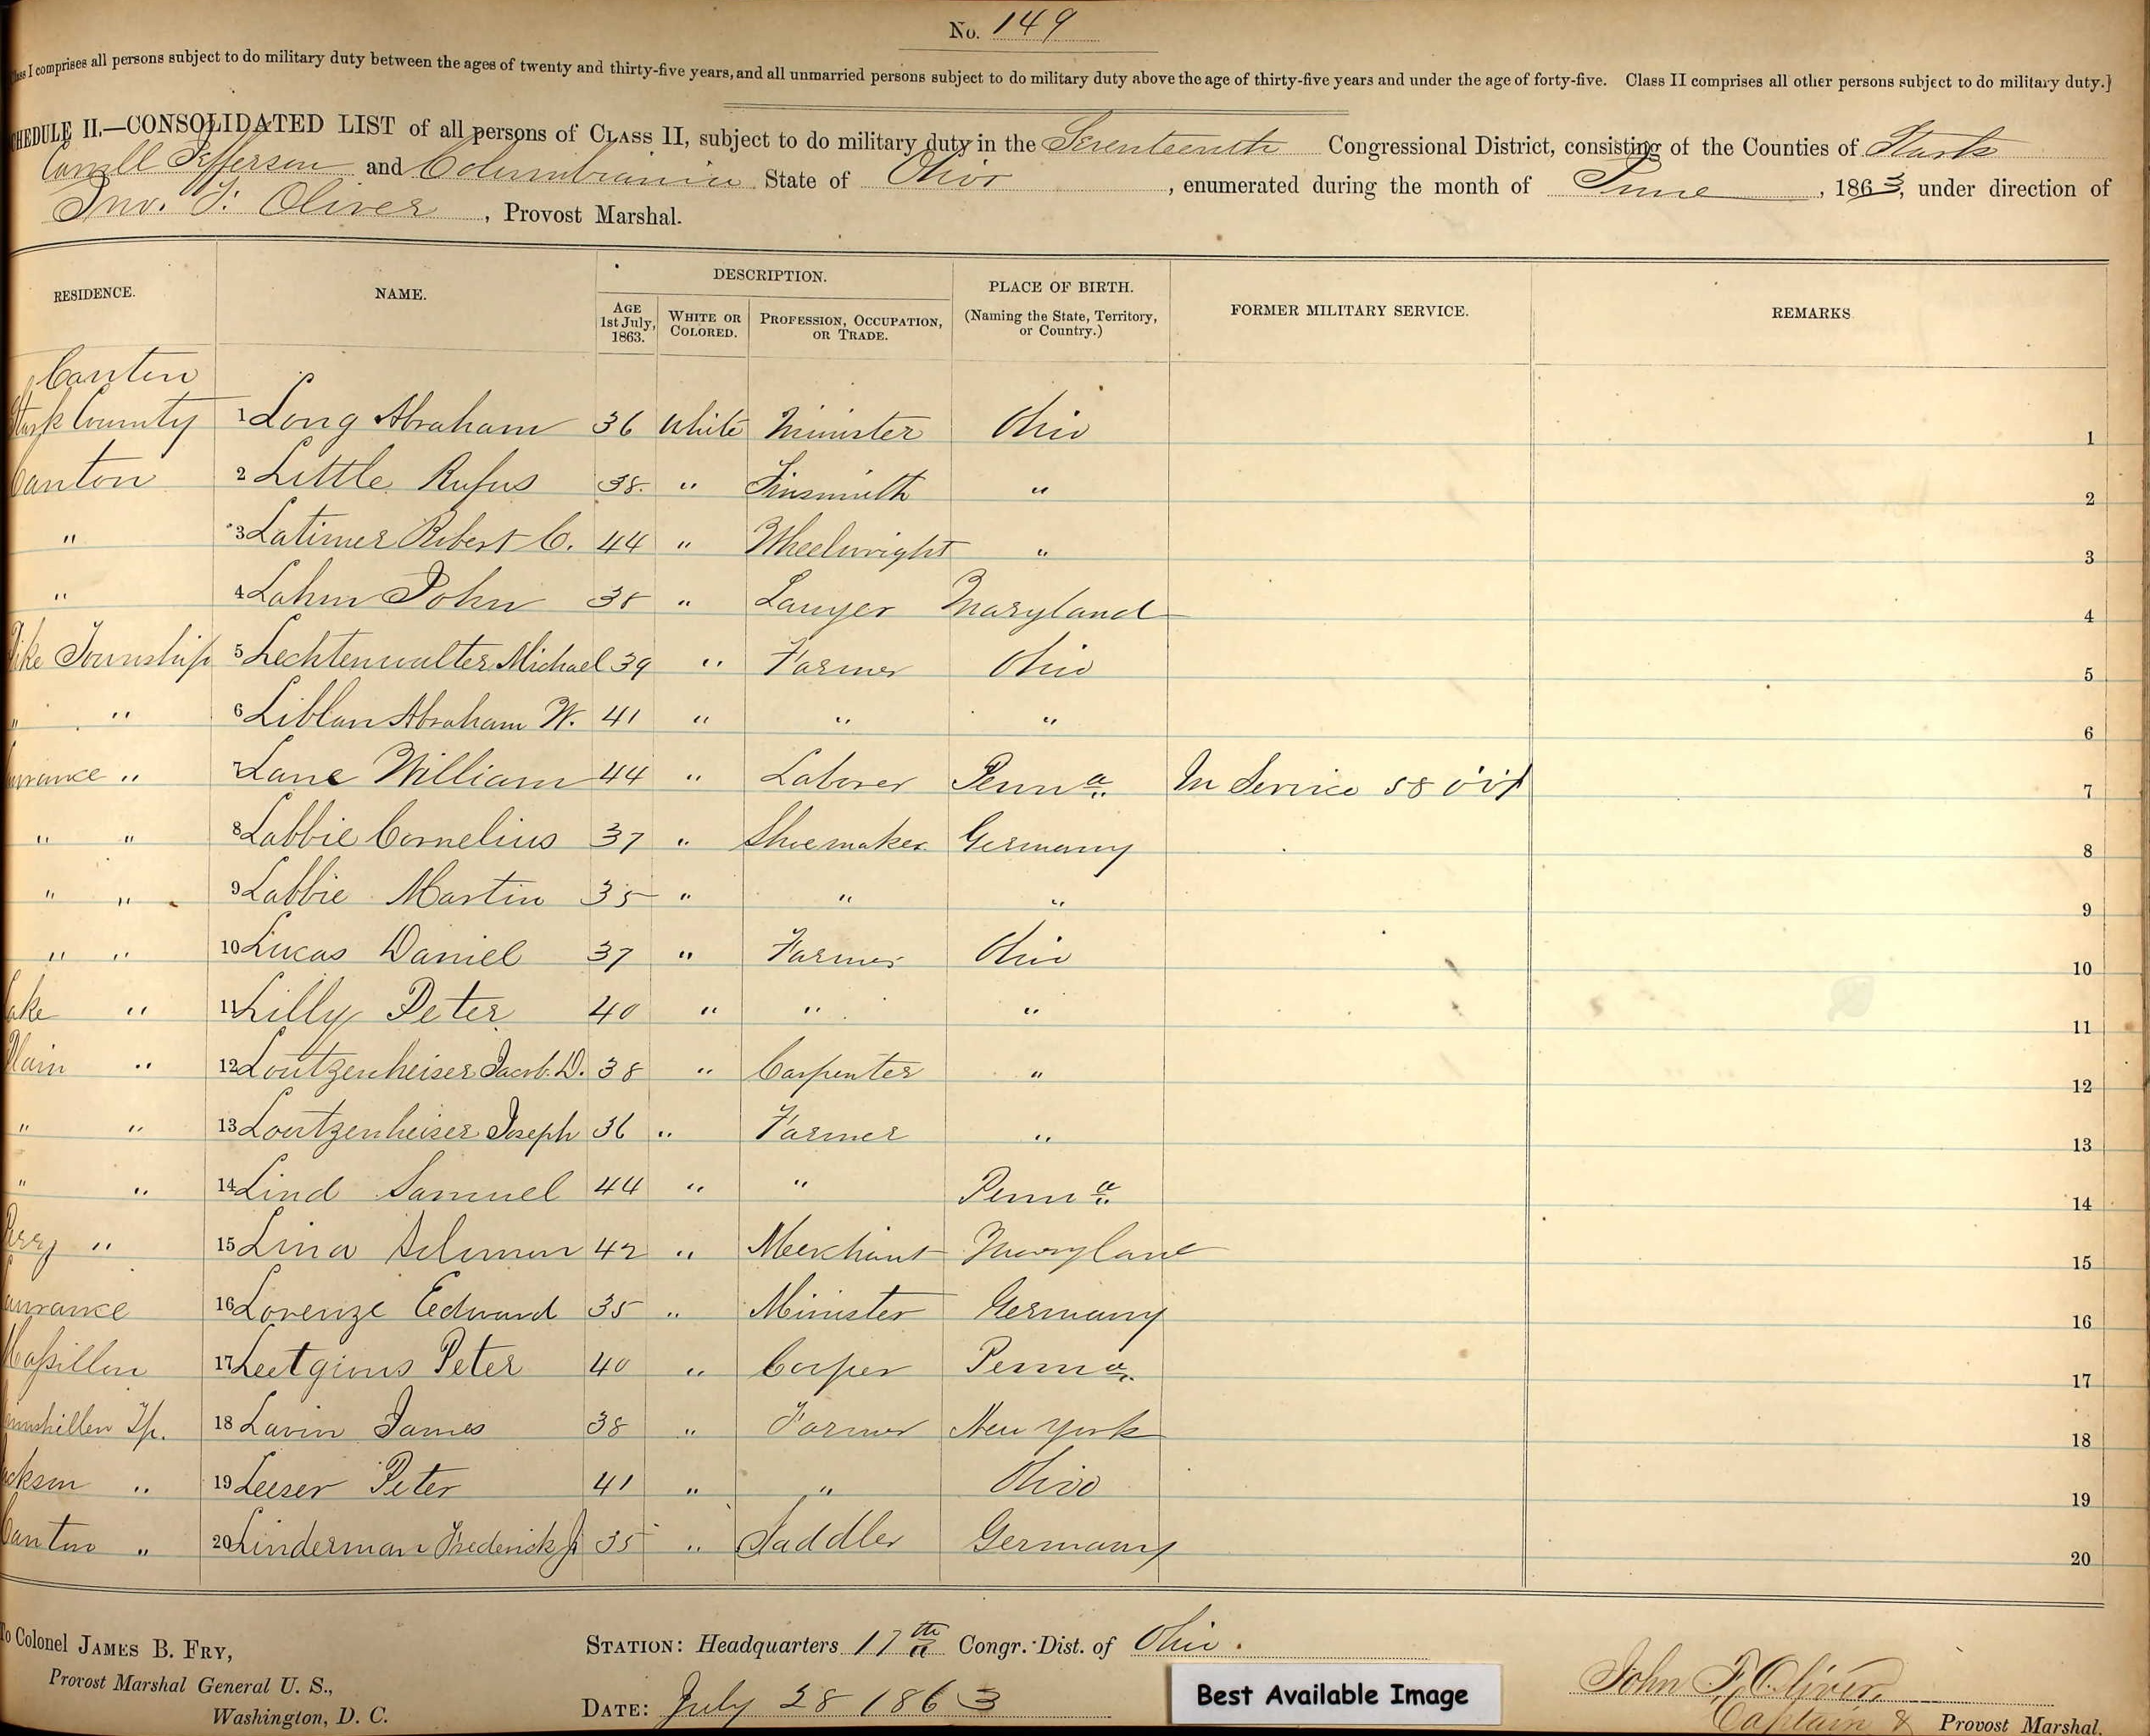 No. 149
lass I comprises all persons subject to do military duty between the ages of twenty and thirty-five years, and all unmarried persons subject to do military duty above the age of thirty-five years and under the age of forty-five. Class II comprises all other persons subject to do military duty.]
HEDULE II.—CONSOLIDATED LIST of all persons of CLASS II, subject to do military duty in the Seventeenth Congressional District, consisting of the Counties of Stark
Carroll Jefferson and Columbiania State of Ohio, enumerated during the month of June, 1863, under direction of
Jno. F. Oliver, Provost Marshal.
RESIDENCE. NAME. DESCRIPTION. PLACE OF BIRTH. (Naming the State, Territory, or Country.) FORMER MILITARY SERVICE. REMARKS
AGE 1st July, 1863. WHITE OR COLORED. PROFESSION, OCCUPATION, OR TRADE.
Canton
Stark County 1 Long Abraham 36 White Minister Ohio 1
Canton 2 Little Rufus 38. " Tinsmith " 2
" 3 Latimer Robert C. 44 " Wheelwright " 3
" 4 Lahm John 38 " Lawyer Maryland 4
Pike Township 5 Lechtenwalter Michael 39 " Farmer Ohio 5
" " 6 Liblan Abraham W. 41 " " " 6
urance " 7 Lane William 44 " Laborer Penna In Service 58 7
" " 8 Labbie Cornelius 37 " Shoemaker Germany 8
" " 9 Labbie Martin 35 " " " 9
" " 10 Lucas Daniel 37 " Farmer Ohio 10
ake " 11 Lilly Peter 40 " " " 11
Plain " 12 Loutzenheiser Jacob. D. 38 " Carpenter " 12
" " 13 Loutzenheiser Joseph 36 " Farmer " 13
" " 14 Lind Samuel 44 " " Penna 14
Perry " 15 Lina Solomon 42 " Merchant Maryland 15
aurance 16 Lorenze Edward 35 " Minister Germany 16
Massillon 17 Leetgions Peter 40 " Cooper Penna 17
imishillen Tp. 18 Lavin James 38 " Farmer New York 18
ackson " 19 Leeser Peter 41 " " Ohio 19
Canton " 20 Linderman Frederick Jr 35 " Saddler Germany 20
To Colonel JAMES B. FRY,
Provost Marshal General U. S.,
Washington, D. C.
STATION: Headquarters 17th Congr. Dist. of Ohio.
DATE: July 28 1863
Best Available Image
John F. Oliver,
Captain & Provost Marshal.